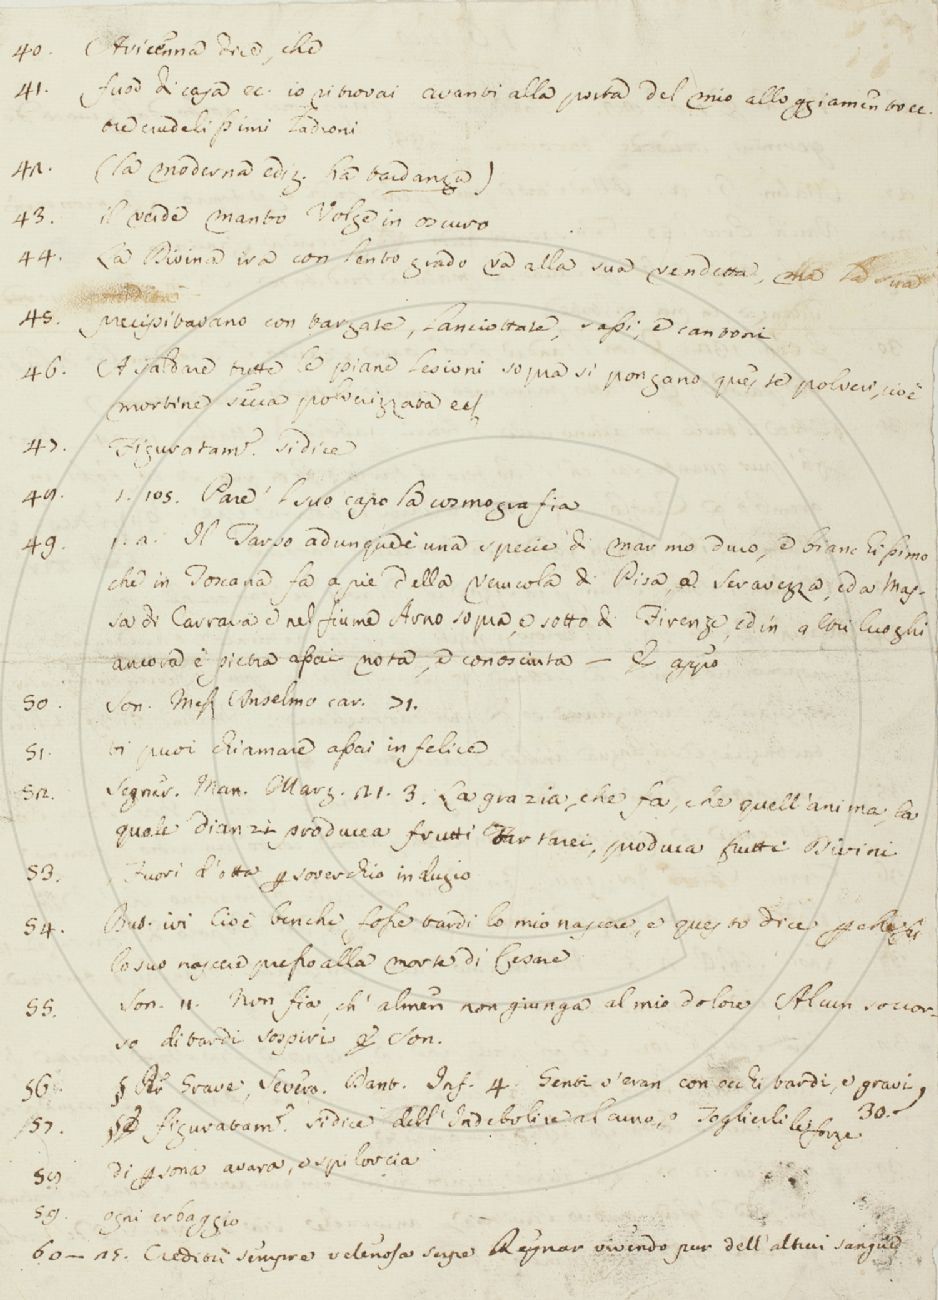 40. Avicenna dice, che
41. fuod di casa ec. io ritrovai avanti alla porta del mio alloggiamento ec.
tre crudelissimi Ladroni
42. (la moderna ediz. ha tardanza)
43. il verde manto Volge in oscuro
44. La Divina ira con lento grado va alla sua vendetta, ma la sua
45. precipitavano con targate, Lanciottate, sassi, e cantoni
46. A saldare tutte le piane lesioni sopra si pongano queste polveri, cioè
mortine secca polverizzata ec
47. Figuratam. si dice
48. 1. 105. Pare 'l suo capo la cosmografia
49. 1. a. Il Tarso adunque è una specie di marmo duro, e bianchissimo
che in Toscana fa a piè della verrucola di Pisa, a Seravezza, ed a Mas-
sa di Carrara e nel fiume Arno sopra, e sotto di Firenze, ed in altri luoghi
ancora è pietra assai nota, e conosciuta —
50. Son. Mess Anselmo car. 71.
51. ti puoi chiamare assai infelice
52. Segner. Man. Marz. 21. 3. La grazia, che fa, che quell'anima, la
quale dianzi producea frutti Tartarei, produca frutti Divini
53. Fuori d'otta p soverchio indugio
54. But. ivi Cioè benche fosse tardi lo mio nascere, e questo dice
lo suo nascere presso alla morte di Cesare
55. Son. 11. Non fia, ch' almen non giunga al mio dolore Alcun soccor-
so di tardi sospiri Son.
56. § Per Grave, Severo. Dant. Inf. 4. Genti v'eran con occhi tardi, e gravi,
57. § figuratam. si dice dell'Indebolire alcuno, o Toglierli le forze 30.
58 di psona avara, e spilorcia
59. ogni erbaggio
60 — 25. Credetti sempre velenosa serpe Regnar vivendo pur dell'altrui sangue